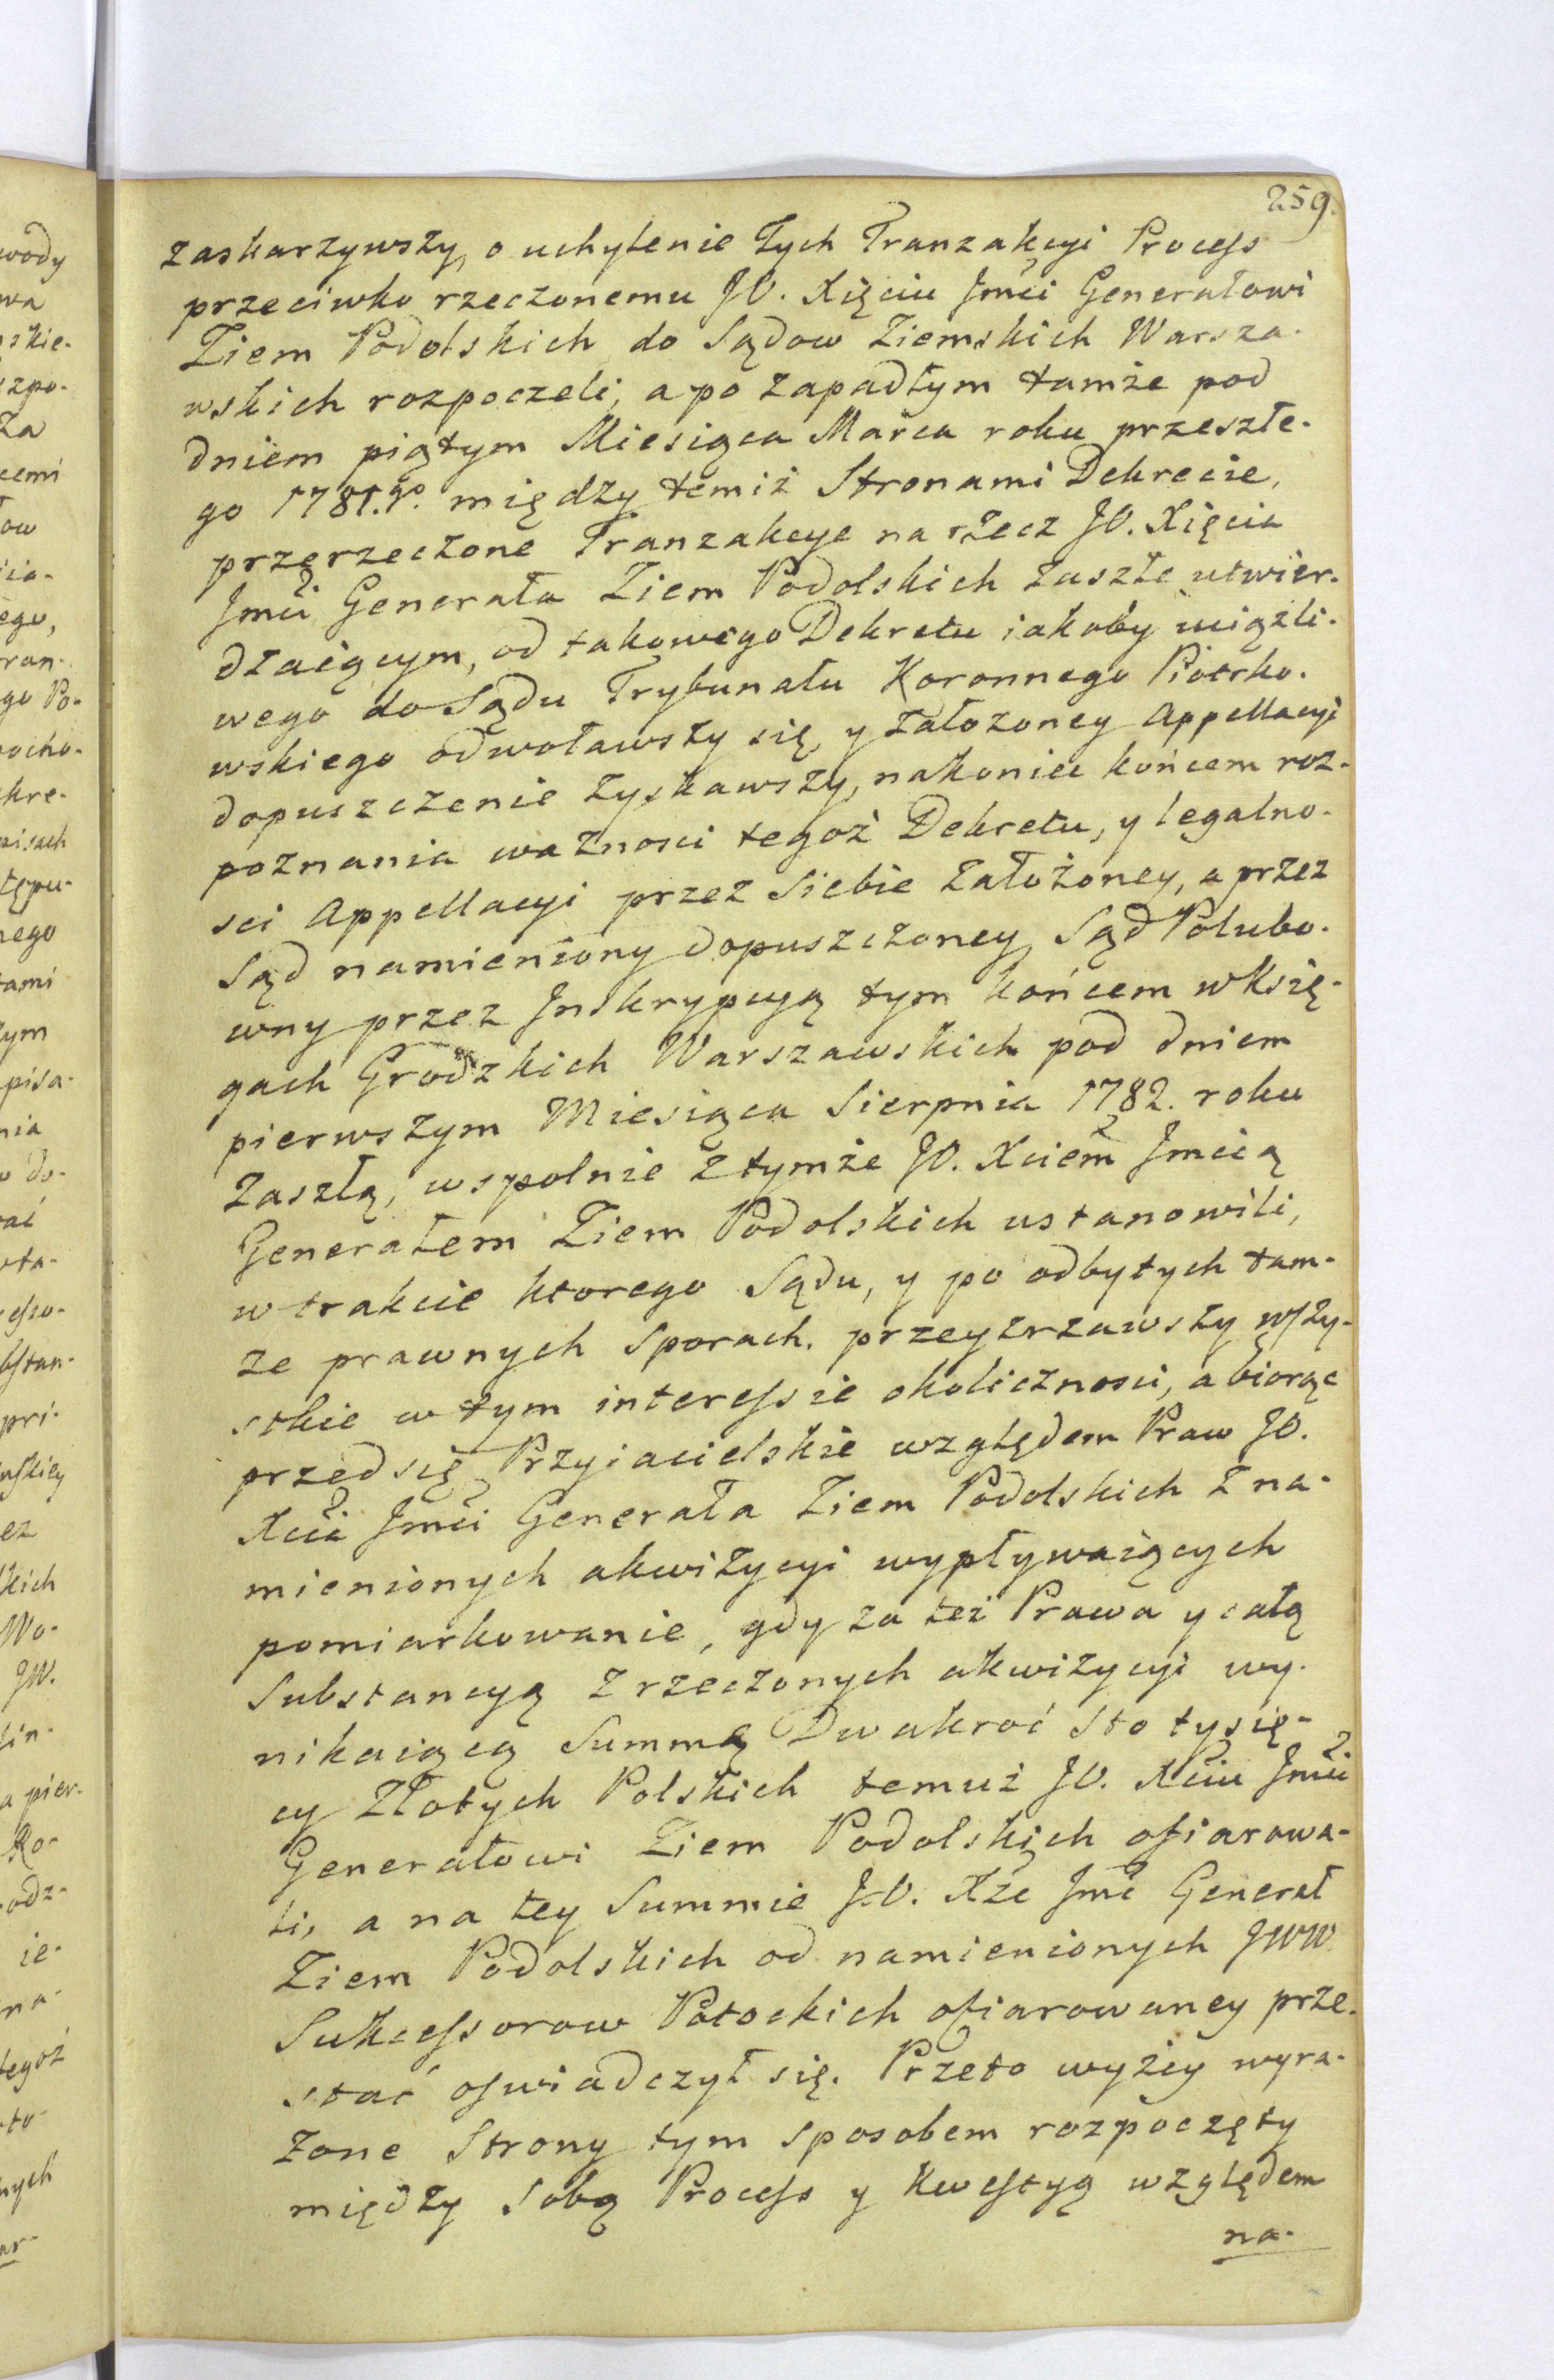 259.
zaskarzywszy, o uchylenie tych Tranzakcyi Process
przeciwko rzeczonemu JO. Xięciu Jmći Generałowi
Ziem Podolskich do Sądow Ziemskich Warsza-
wskich rozpoczeli, a po zapadłym tamże pod
dniem piątym Miesiąca Marca roku przeszłe-
go 1781.go między temiż Stronami Dekrecie,
przerzeczone Tranzakcye na rzecz JO. Xięcia
Jmći Generała Ziem Podolskich zaszłe utwier-
dzaiącym, od takowego Dekretu iakoby uciążli-
wego do Sądu Trybunału Koronnego Piotrko-
wskiego odwoławszy się, y założoney Appellacyi
dopuszczenie zyskawszy, nakoniec końcem roz-
poznania ważnosci tegoż Dekretu, y legalno-
sci Appellacyi przez Siebie założoney, a przez
Sąd namieniony dopuszczoney, Sąd Polubo-
wny przez Jnskrypcyą tym końcem w Księ-
gach Grodzkich Warszawskich pod dniem
pierwszym Miesiąca Sierpnia 1782. roku
zaszłą, wspolnie z tymże JO. Xciem Jmcią
Generałem Ziem Podolskich ustanowili,
w trakcie ktorego Sądu, y po odbytych tam-
ze prawnych Sporach, przeyzrzawszy wszy-
stkie w tym interessie okolicznosci, a biorąc
przed się Przyiacielskie względem Praw JO.
Xcia Jmći Generała Ziem Podolskich z na-
mienionych akwizycyi wypływaiących
pomiarkowanie, gdy za też Prawa y całą
Substancyą z rzeczonych akwizycyi wy-
nikaiącą Summę Dwakroć sto tysię-
cy Złotych Polskich temuż JO. Xciu Jmći
Generałowi Ziem Podolskich ofiarowa-
li, a na tey Summie JO. Xże Jmć Generał
Ziem Podolskich od namienionych JWW.
Sukcessorow Potockich ofiarowaney prze-
stać oswiadczył się. Przeto wyżey wyra-
zone Strony tym sposobem rozpoczęty
między sobą Process y Kwestyą względem
na-